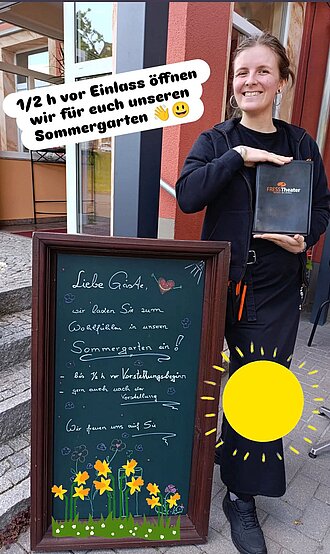 1/2 h vor Einlass öffnen
wir für euch unseren
Sommergarten 👋 😃
FRESSTheater
Liebe Gäste,
wir laden Sie zum
Wohlfühlen in unseren
Sommergarten ein!
bis ½ h vor Vorstellungsbeginn
gern auch nach der
Vorstellung
Wir freuen uns auf Sie